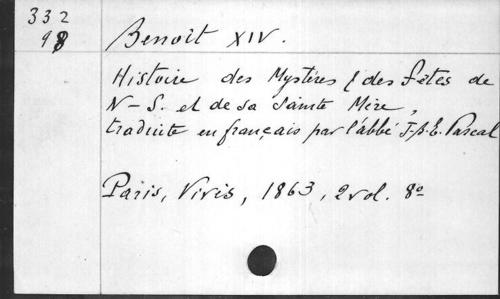 332
98
Benoît XIV.
Histoire des Mystères & des Fêtes de
N-S. et de sa Sainte Mère,
traduite en français par l'abbé J-B-E. Pascal
Paris, Vivès, 1863, 2 vol. 8º